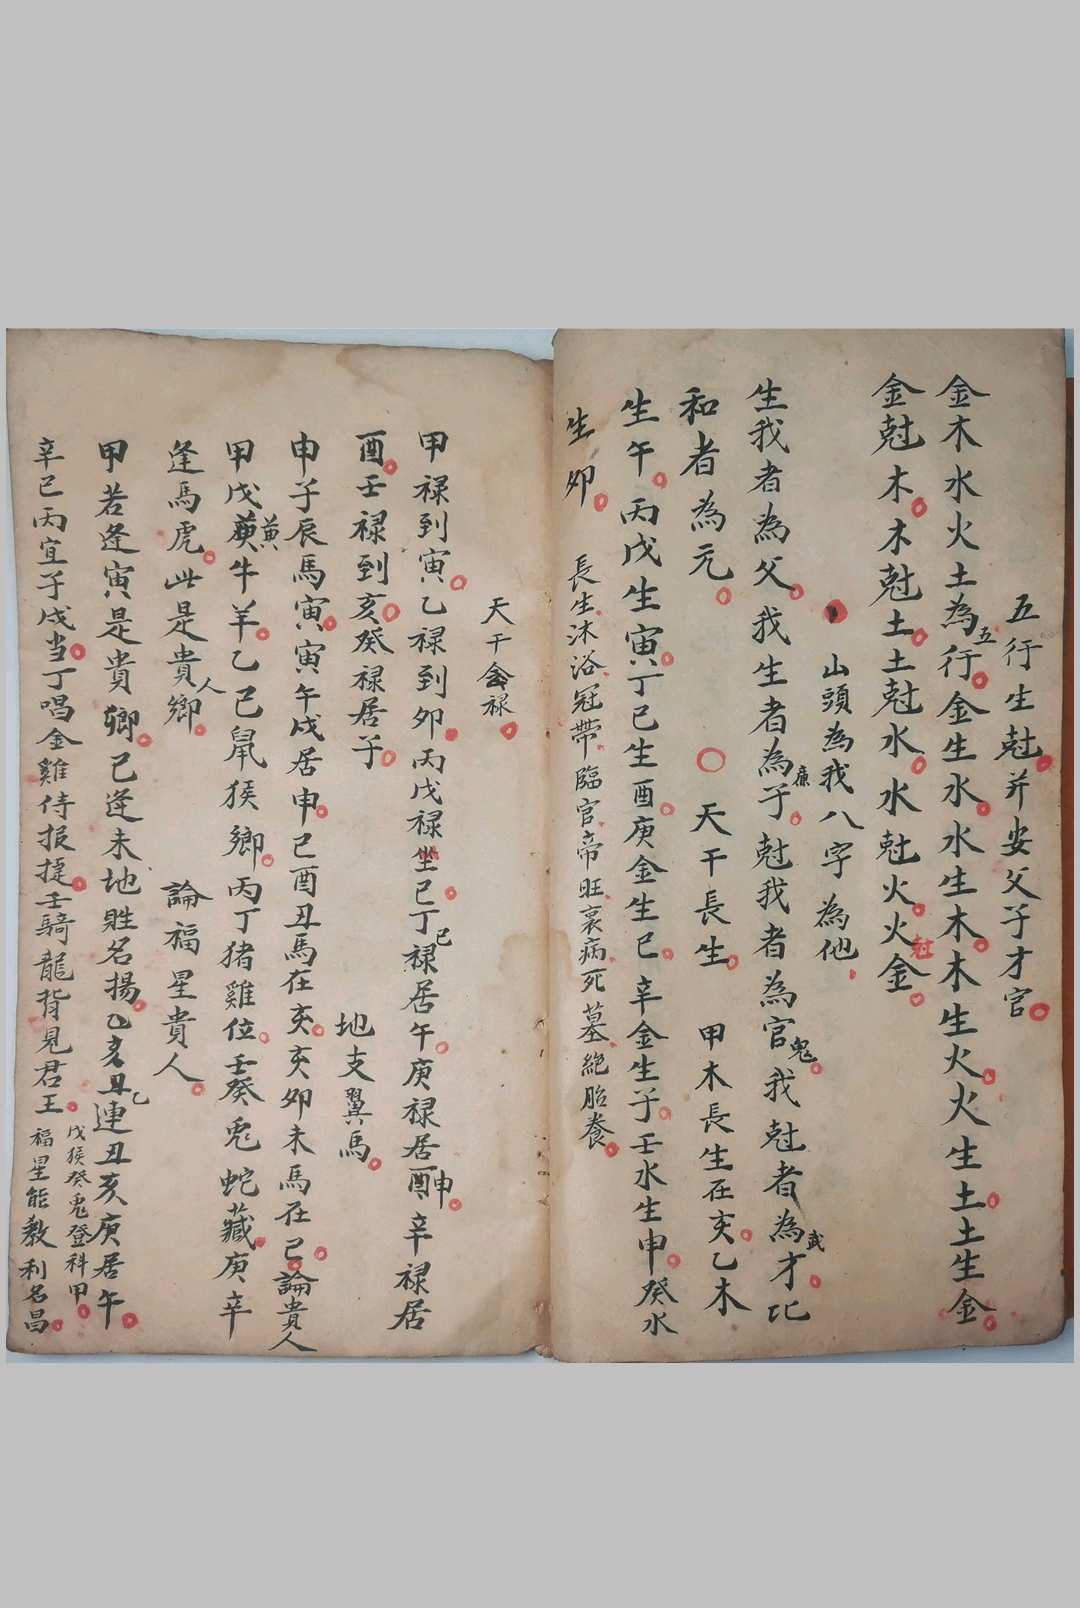 五行生尅并安父子才官
金木水火土為五行金生水水生木木生火火生土土生金
金尅木木尅土土尅水水尅火火尅金
山頭為我八字為他
生我者為父我生者為子廉尅我者為官鬼我尅者為才武比
和者為元
天干長生
甲木長生在亥乙木
生午丙戊生寅丁己生酉庚金生巳辛金生子壬水生申癸水
生卯
長生沐浴冠帶臨官帝旺衰病死墓絕胎養
天干禄
甲禄到寅乙禄到卯丙戊禄坐巳丁己禄居午庚禄居申辛禄居
酉壬禄到亥癸禄居子
地支翼馬
申子辰馬寅寅午戌居申巳酉丑馬在亥亥卯未馬在巳論貴人
甲戊黄牛羊乙己鼠猴鄉丙丁猪雞位壬癸兎蛇藏庚辛
逢馬虎此是貴人鄉
論福星貴人
甲若逢寅是貴鄉己逢未地姓名揚乙亥丑乙連丑亥庚居午
戊猴癸兎登科甲
辛巳丙宜子戌当丁唱金雞侍报捷壬騎龍背見君王福星能教利名昌